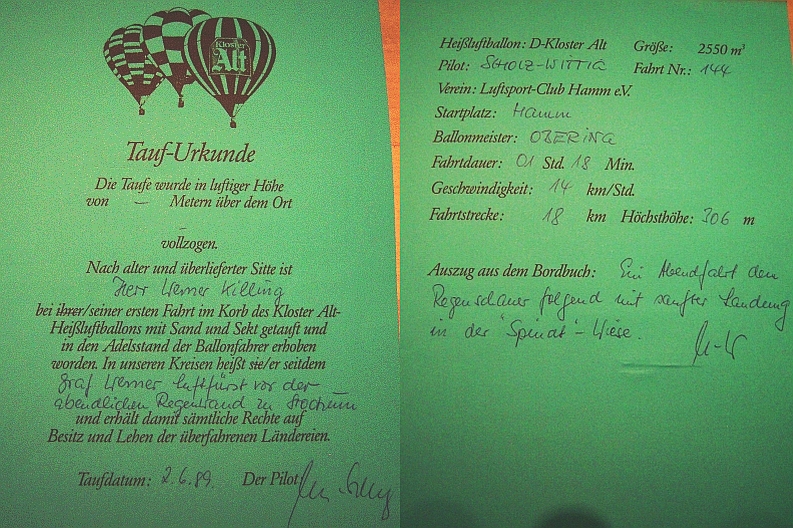 Kloster
Alt
Tauf-Urkunde
Die Taufe wurde in luftiger Höhe
von — Metern über dem Ort
—
vollzogen.
Nach alter und überlieferter Sitte ist
Herr Werner Killing
bei ihrer/seiner ersten Fahrt im Korb des Kloster Alt-
Heißluftballons mit Sand und Sekt getauft und
in den Adelsstand der Ballonfahrer erhoben
worden. In unseren Kreisen heißt sie/er seitdem
Graf Werner Luftfürst vor der
abendlichen Regenwand zu Stockum
und erhält damit sämtliche Rechte auf
Besitz und Lehen der überfahrenen Ländereien.
Taufdatum: 2.6.89. Der Pilot:
Heißluftballon: D-Kloster Alt Größe: 2550 m³
Pilot: SCHOLZ-WITTIG Fahrt Nr.: 144
Verein: Luftsport-Club Hamm e.V.
Startplatz: Hamm
Ballonmeister: OBERING
Fahrtdauer: 01 Std. 18 Min.
Geschwindigkeit: 14 km/Std.
Fahrtstrecke: 18 km Höchsthöhe: 306 m
Auszug aus dem Bordbuch: Ein Abendfahrt den
Regenschauer folgend mit sanfter Landung
in der "Spinat"-Wiese.